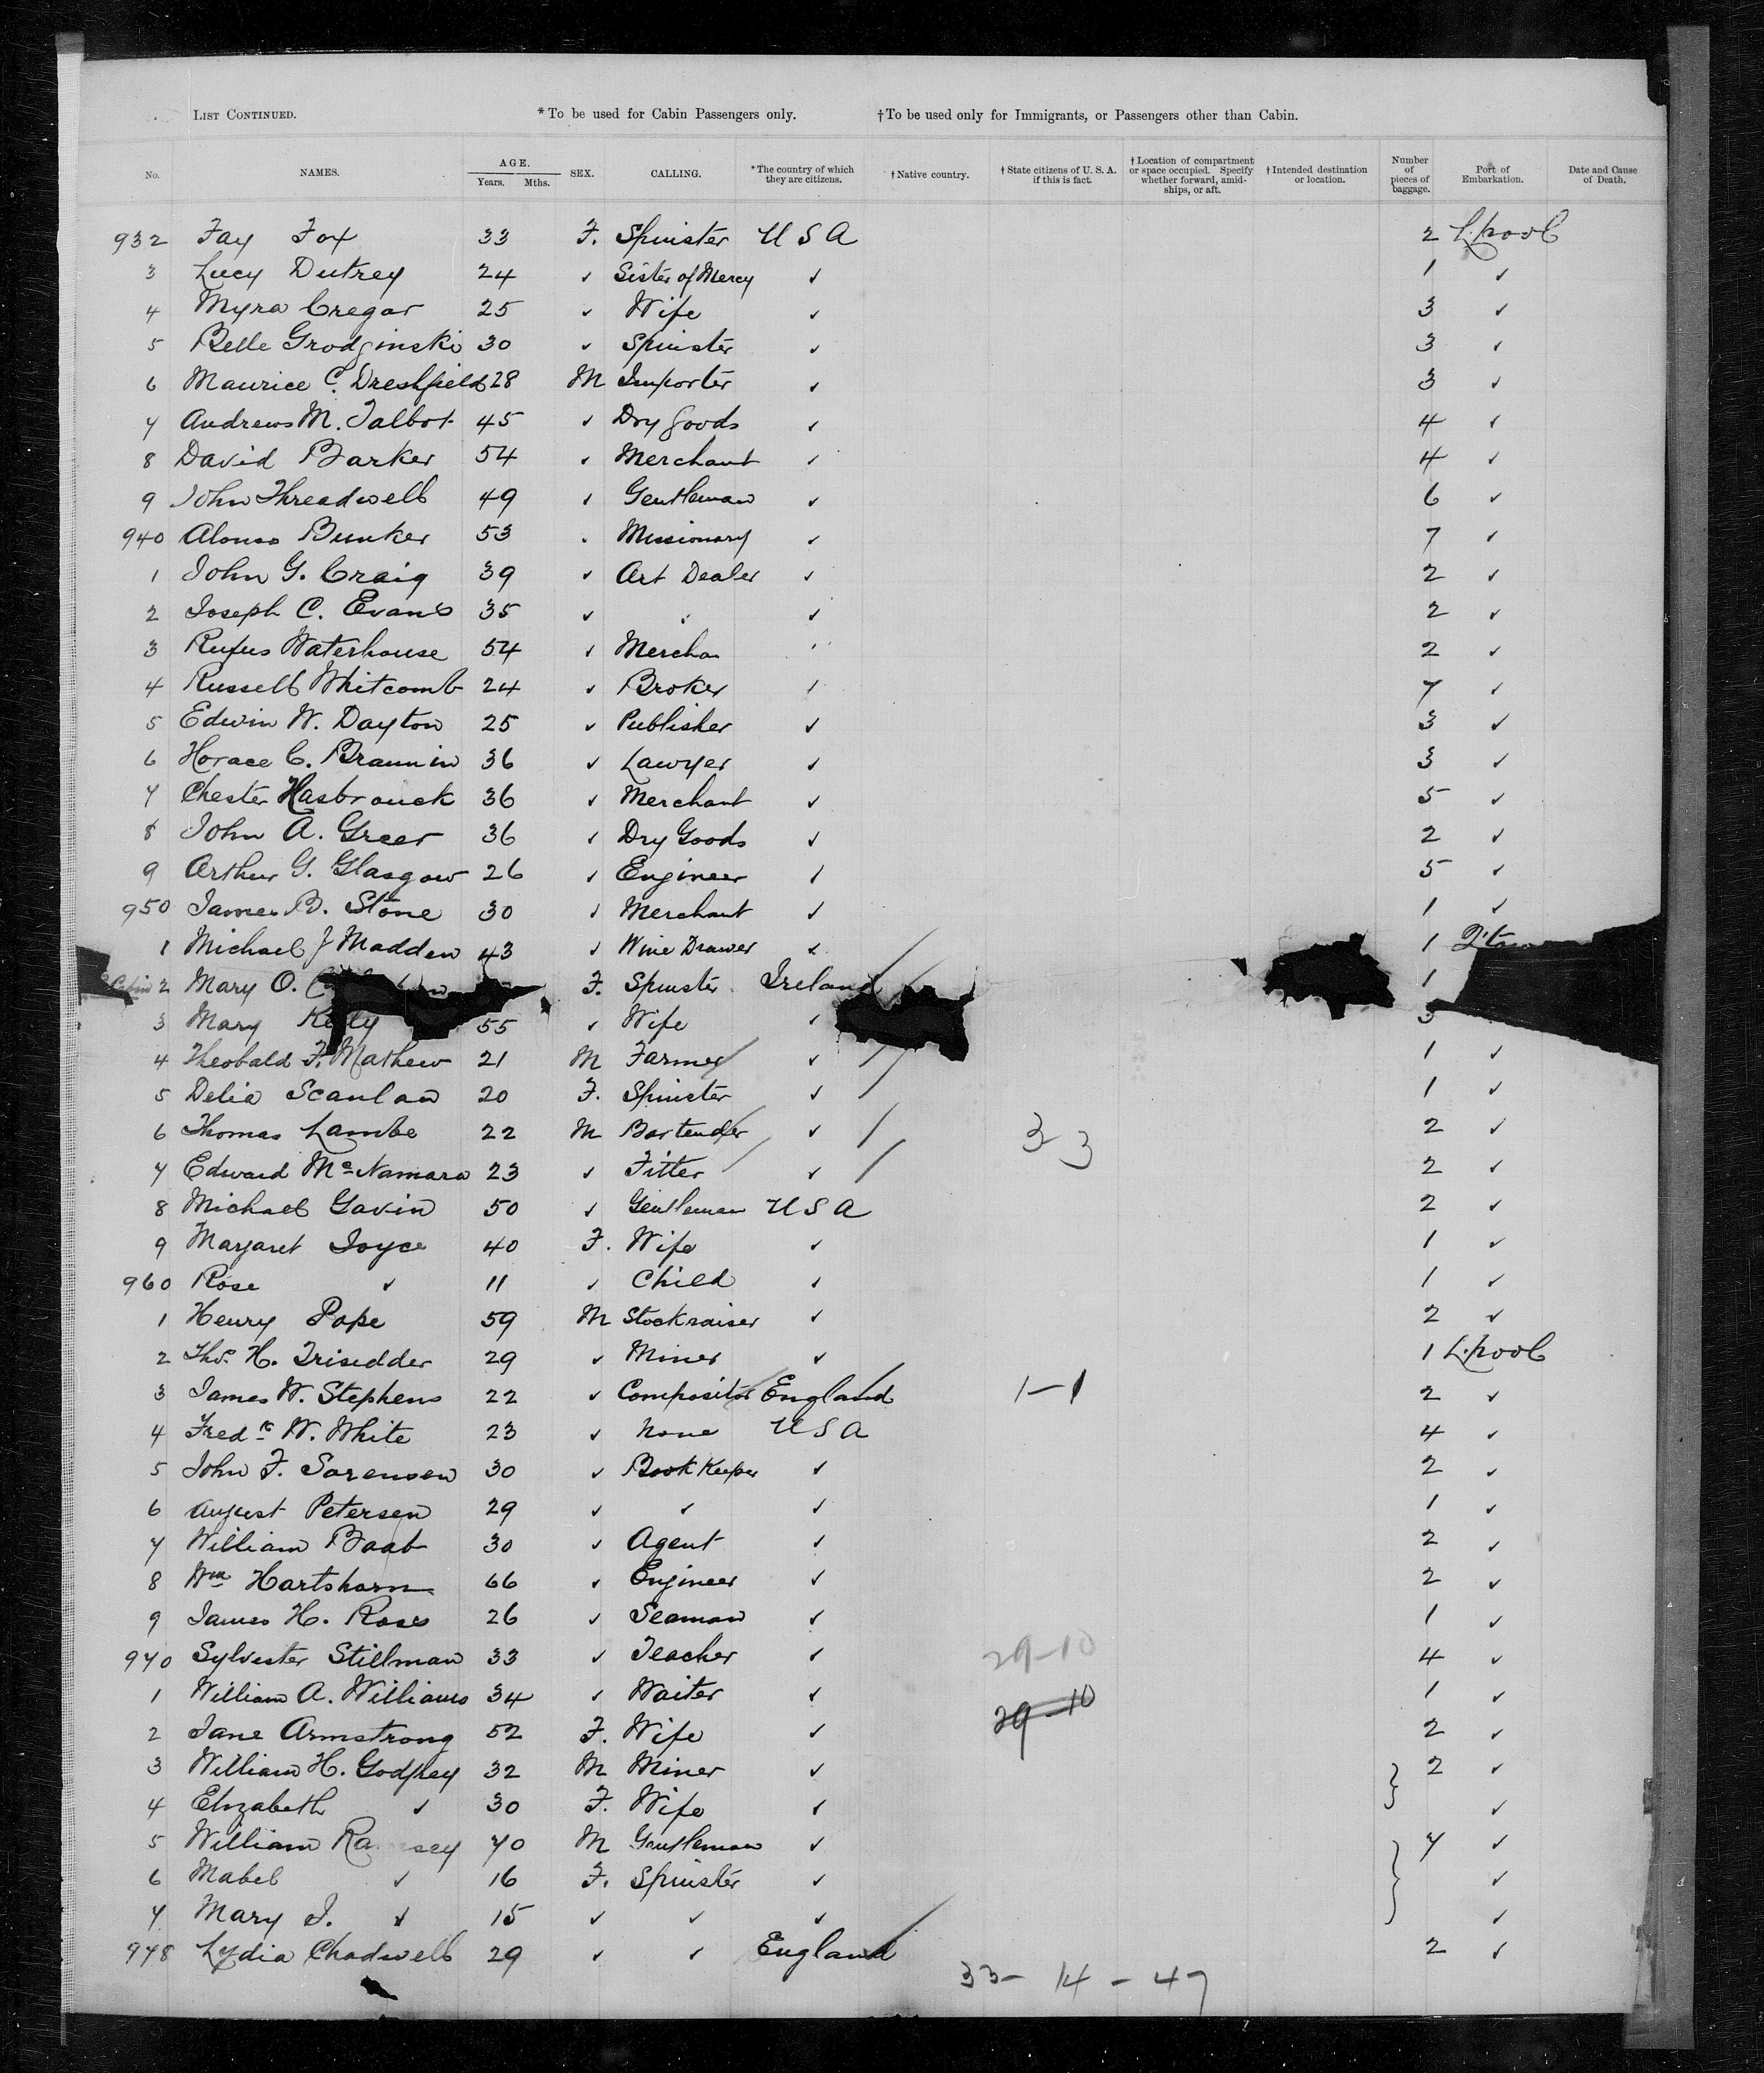 LIST CONTINUED. *To be used for Cabin Passengers only. †To be used only for Immigrants, or Passengers other than Cabin.
No. NAMES. AGE. Years. Mths. SEX. CALLING. *The country of which they are citizens. †Native country. †State citizens of U. S. A. if this is fact. †Location of compartment or space occupied. Specify whether forward, amid-ships, or aft. †Intended destination or location. Number of pieces of baggage. Port of Embarkation. Date and Cause of Death.
932 Fay Fox 33 F. Spinster U S A 2 L.pool
3 Lucy Dutrey 24 ✓ Sister of Mercy ✓ 1 ✓
4 Myra Cregar 25 ✓ Wife ✓ 3 ✓
5 Belle Grodginski 30 ✓ Spinster ✓ 3 ✓
6 Maurice C. Dreshfield 28 M Importer ✓ 3 ✓
7 Andrews M. Talbot 45 ✓ Dry Goods ✓ 4 ✓
8 David Barker 54 ✓ Merchant ✓ 4 ✓
9 John Threadwell 49 ✓ Gentleman ✓ 6 ✓
940 Alonso Bunker 53 ✓ Missionary ✓ 7 ✓
1 John G. Craig 39 ✓ Art Dealer ✓ 2 ✓
2 Joseph C. Evans 35 ✓ ✓ ✓ 2 ✓
3 Rufus Waterhouse 54 ✓ Merchan ✓ 2 ✓
4 Russell Whitcomb 24 ✓ Broker ✓ 7 ✓
5 Edwin W. Dayton 25 ✓ Publisher ✓ 3 ✓
6 Horace C. 36 ✓ Lawyer ✓ 3 ✓
7 Chester Hasbrouck 36 ✓ Merchant ✓ 5 ✓
8 John A. Greer 36 ✓ Dry Goods ✓ 2 ✓
9 Arthur G. Glasgow 26 ✓ Engineer ✓ 5 ✓
950 James B. Stone 30 ✓ Merchant ✓ 1 ✓
1 Michael J Madden 43 ✓ Wine Drawer ✓ 1
2 Mary O. F. Spinster Ireland 1
3 Mary Kelly 55 ✓ Wife ✓ 3
4 Theobald F. Mathew 21 M Farmer ✓ 1 ✓
5 Delia Scanlan 20 F. Spinster ✓ 1 ✓
6 Thomas Lambe 22 M Bartender ✓ 3-3 2 ✓
7 Edward McNamara 23 ✓ Fitter ✓ 2 ✓
8 Michael Gavin 50 ✓ Gentleman U S A 2 ✓
9 Margaret Joyce 40 F. Wife ✓ 1 ✓
960 Rose ✓ 11 ✓ Child ✓ 1 ✓
1 Henry Pope 59 M Stockraiser ✓ 2 ✓
2 Thos. H. Trisedder 29 ✓ Miner ✓ 1 L.pool
3 James W. Stephens 22 ✓ Compositor England 1-1 2 ✓
4 Fredk W. White 23 ✓ None U S A 4 ✓
5 John F. Sorensen 30 ✓ Book Keeper ✓ 2 ✓
6 August Petersen 29 ✓ ✓ ✓ 1 ✓
7 William Baab 30 ✓ Agent ✓ 2 ✓
8 Wm Hartshorn 66 ✓ Engineer ✓ 2 ✓
9 James H. Ross 26 ✓ Seaman ✓ 1 ✓
970 Sylvester Stillman 33 ✓ Teacher ✓ 29-10 4 ✓
1 William A. Williams 34 ✓ Waiter ✓ 29-10 1 ✓
2 Jane Armstrong 52 F. Wife ✓ 2 ✓
3 William H. Godfrey 32 M Miner ✓ 2 ✓
4 Elizabeth ✓ 30 F. Wife ✓ ✓
5 William Ramsey 70 M Gentleman ✓ 7 ✓
6 Mabel ✓ 16 F. Spinster ✓ ✓
7 Mary J. ✓ 15 ✓ ✓ ✓ ✓
978 Lydia Chadwell 29 ✓ ✓ England 2 ✓
33- 14 - 47